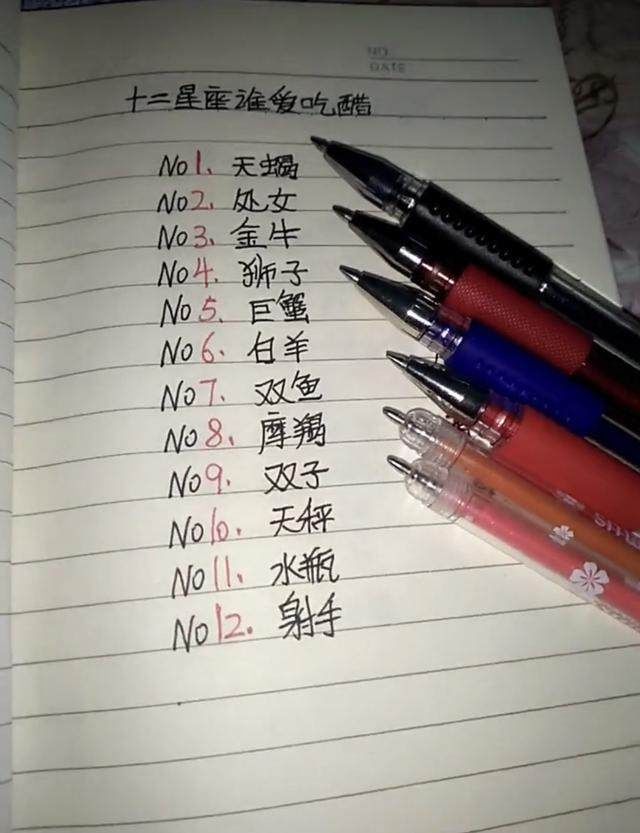 NO.
DATE
十二星座谁爱吃醋
No1. 天蝎
No2. 处女
No3. 金牛
No4. 狮子
No5. 巨蟹
No6. 白羊
No7. 双鱼
No8. 摩羯
No9. 双子
No10. 天秤
No11. 水瓶
No12. 射手